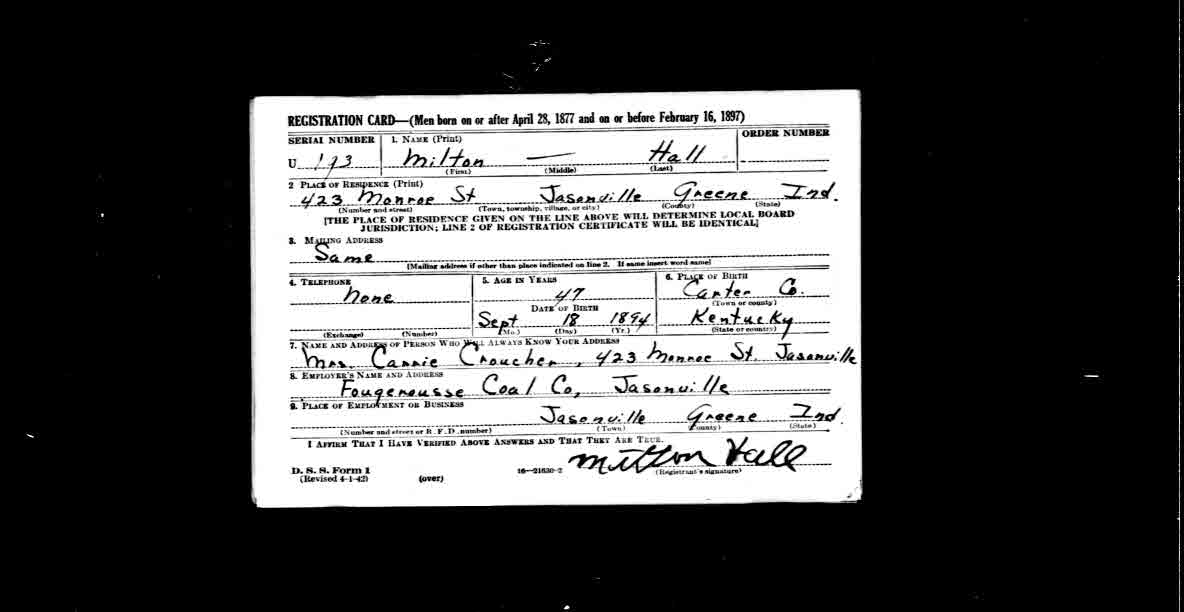 REGISTRATION CARD—(Men born on or after April 28, 1877 and on or before February 16, 1897)
SERIAL NUMBER 1. NAME (Print) ORDER NUMBER
U 193 Milton — Hall
(First) (Middle) (Last)
2 PLACE OF RESIDENCE (Print)
423 Monroe St Jasonville Greene Ind.
(Number and street) (Town, township, village, or city) (County) (State)
[THE PLACE OF RESIDENCE GIVEN ON THE LINE ABOVE WILL DETERMINE LOCAL BOARD
JURISDICTION; LINE 2 OF REGISTRATION CERTIFICATE WILL BE IDENTICAL]
3. MAILING ADDRESS
Same
[Mailing address if other than place indicated on line 2. If same insert word same]
4. TELEPHONE 5. AGE IN YEARS 6. PLACE OF BIRTH
None 47 Carter Co.
DATE OF BIRTH (Town or county)
Sept 18 1894 Kentucky
(Exchange) (Number) (Mo.) (Day) (Yr.) (State or country)
7. NAME AND ADDRESS OF PERSON WHO WILL ALWAYS KNOW YOUR ADDRESS
Mrs. Carrie Croucher, 423 Monroe St. Jasonville
8. EMPLOYER'S NAME AND ADDRESS
Fougerousse Coal Co, Jasonville
9. PLACE OF EMPLOYMENT OR BUSINESS
Jasonville Greene Ind.
(Number and street or R. F. D. number) (Town) (County) (State)
I AFFIRM THAT I HAVE VERIFIED ABOVE ANSWERS AND THAT THEY ARE TRUE.
Milton Hall
D. S. S. Form 1 16—21630-2 (Registrant's signature)
(Revised 4-1-42) (over)